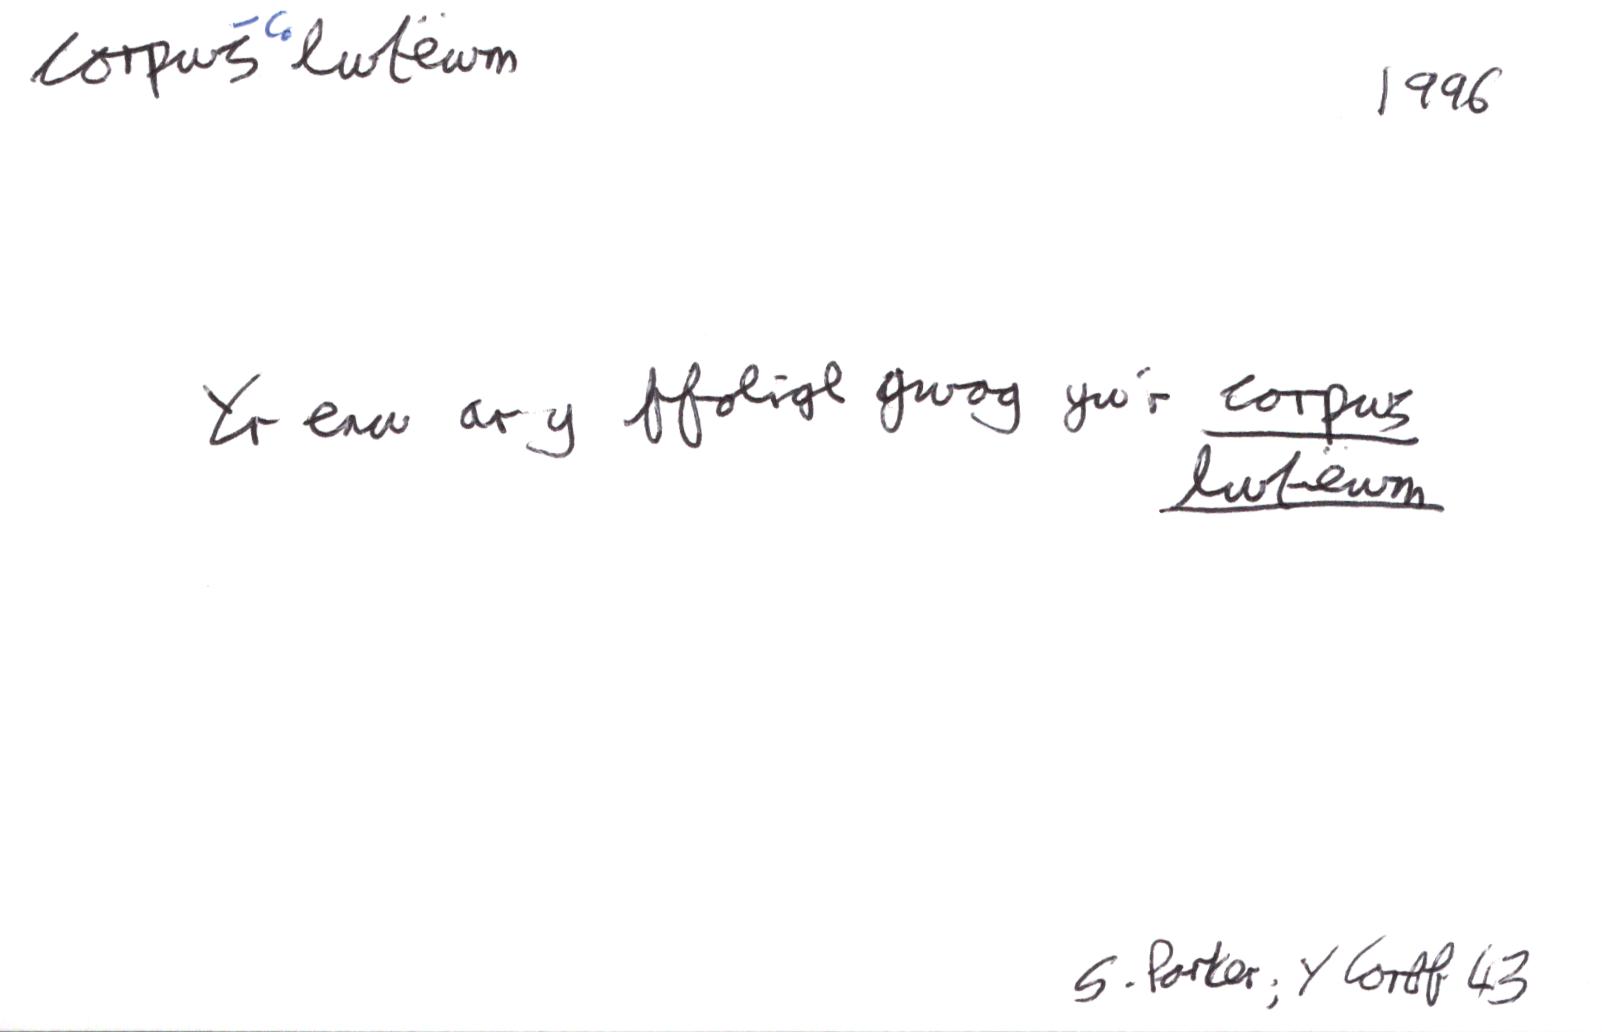 corpws lwtëwm
1996
Yr enw ar y ffoligl gwag yw'r corpws
lwtëwm
S. Parker; Y Corff 43